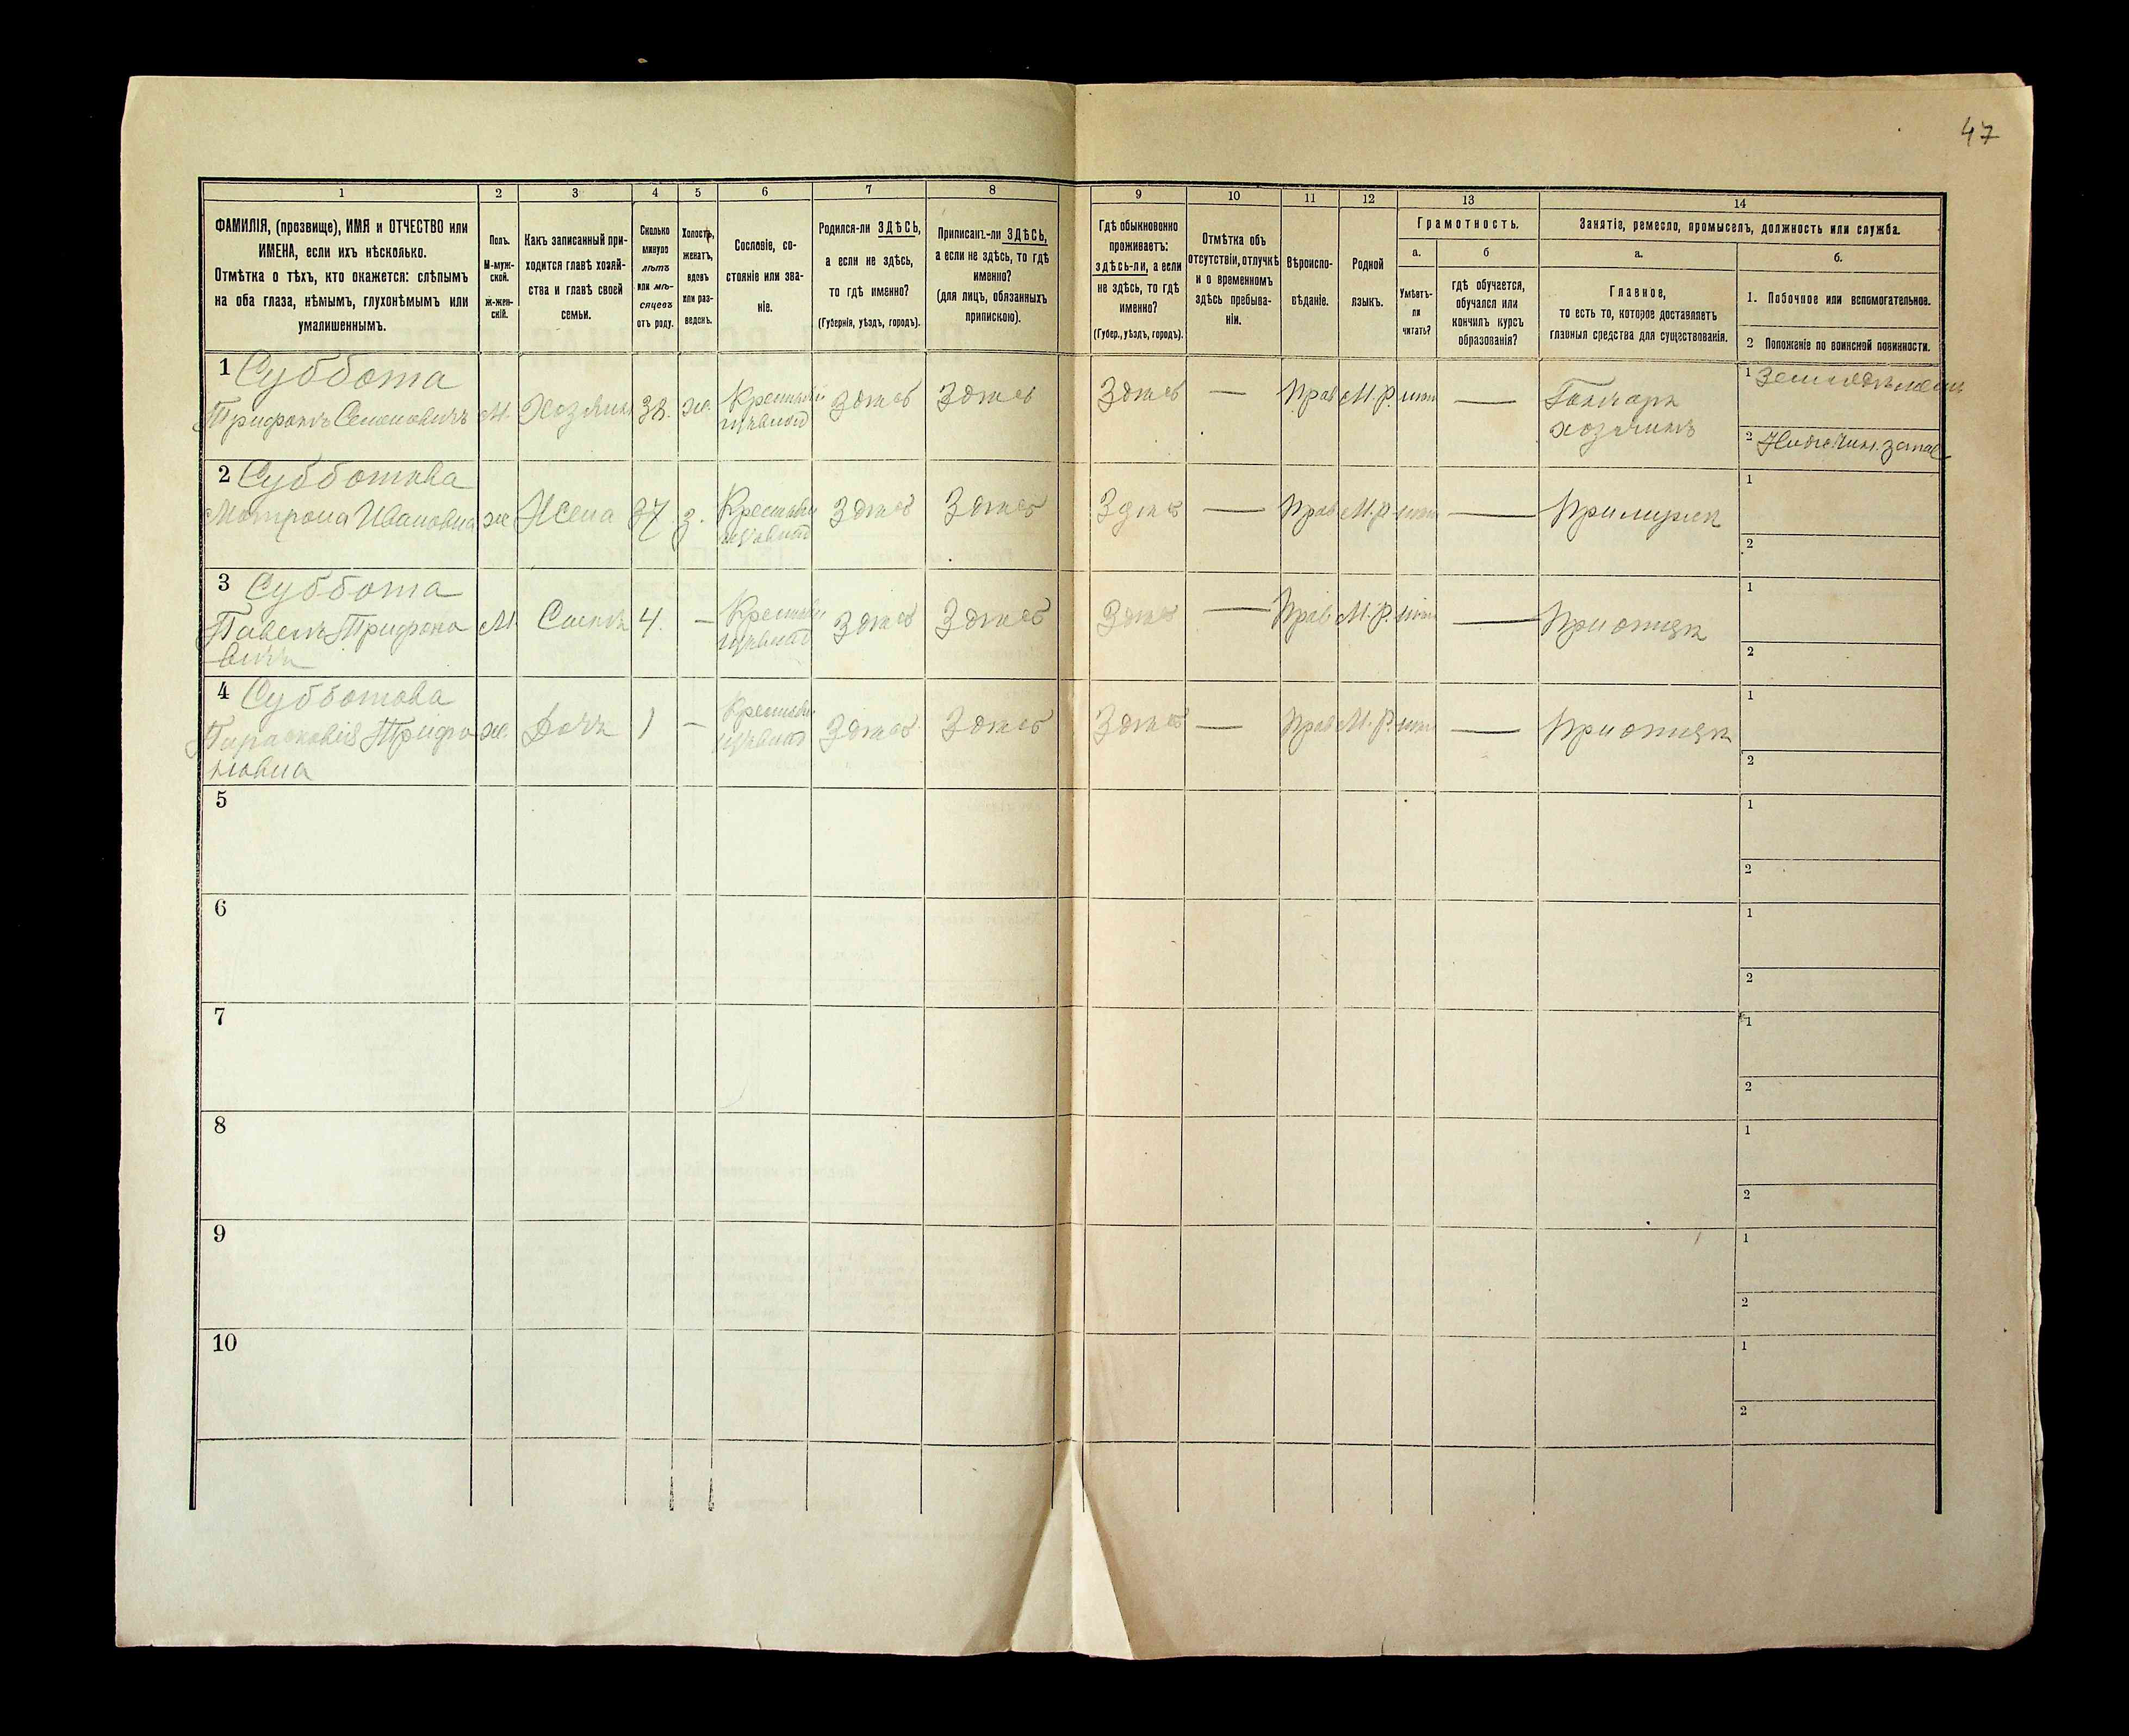 47
1 2 3 4 5 6 7 8 9 10 11 12 13 14
ФАМИЛІЯ, (прозвище), ИМЯ и ОТЧЕСТВО или
ИМЕНА, если ихъ нѣсколько.
Отмѣтка о тѣхъ, кто окажется: слѣпымъ
на оба глаза, нѣмымъ, глухонѣмымъ или
умалишеннымъ.
Полъ.
М-муж-
ской.
ж-жен-
скій.
Какъ записанный при-
ходится главѣ хозяй-
ства и главѣ своей
семьи.
Сколько
минуло
лѣтъ
или мѣ-
сяцевъ
отъ роду.
Холостъ,
женатъ,
вдовъ
или раз-
веденъ.
Сословіе, со-
стояніе или зва-
ніе.
Родился-ли ЗДѢСЬ,
а если не здѣсь,
то гдѣ именно?
(Губернія, уѣздъ, городъ).
Приписанъ-ли ЗДѢСЬ,
а если не здѣсь, то гдѣ
именно?
(для лицъ, обязанныхъ
припискою).
Гдѣ обыкновенно
проживаетъ:
здѣсь-ли, а если
не здѣсь, то гдѣ
именно?
(Губер., уѣздъ, городъ).
Отмѣтка объ
отсутствіи, отлучкѣ
и о временномъ
здѣсь пребыва-
ніи.
Вѣроиспо-
вѣданіе.
Родной
языкъ.
Грамотность.
а.
Умѣетъ-
ли
читать?
б
гдѣ обучается,
обучался или
кончилъ курсъ
образованія?
Занятіе, ремесло, промыселъ, должность или служба.
а.
Главное,
то есть то, которое доставляетъ
главныя средства для существованія.
б.
1. Побочное или вспомогательное.
2 Положеніе по воинской повинности.
1 Суббота
Трифонъ Семеновичъ М. Хозяинъ 38. ж. Здѣсь Здѣсь Здѣсь — Прав М.Р. — Гончаръ
хозяинъ
1
2
2 Субботова
Мотрона Ивановна ж Жена 37 Здѣсь Здѣсь Здѣсь — Прав М.Р — При мужѣ
1
2
3 Суббота
Павелъ Трифоно
вичъ М Сынъ 4. — Здѣсь Здѣсь Здѣсь — Прав М.Р. — При отцѣ
1
2
4 Субботова
Парасковія Трифо
новна ж. Дочь 1 — Здѣсь Здѣсь Здѣсь — Прав М.Р. — При отцѣ
1
2
5
1
2
6
1
2
7
1
2
8
1
2
9
1
2
10
1
2